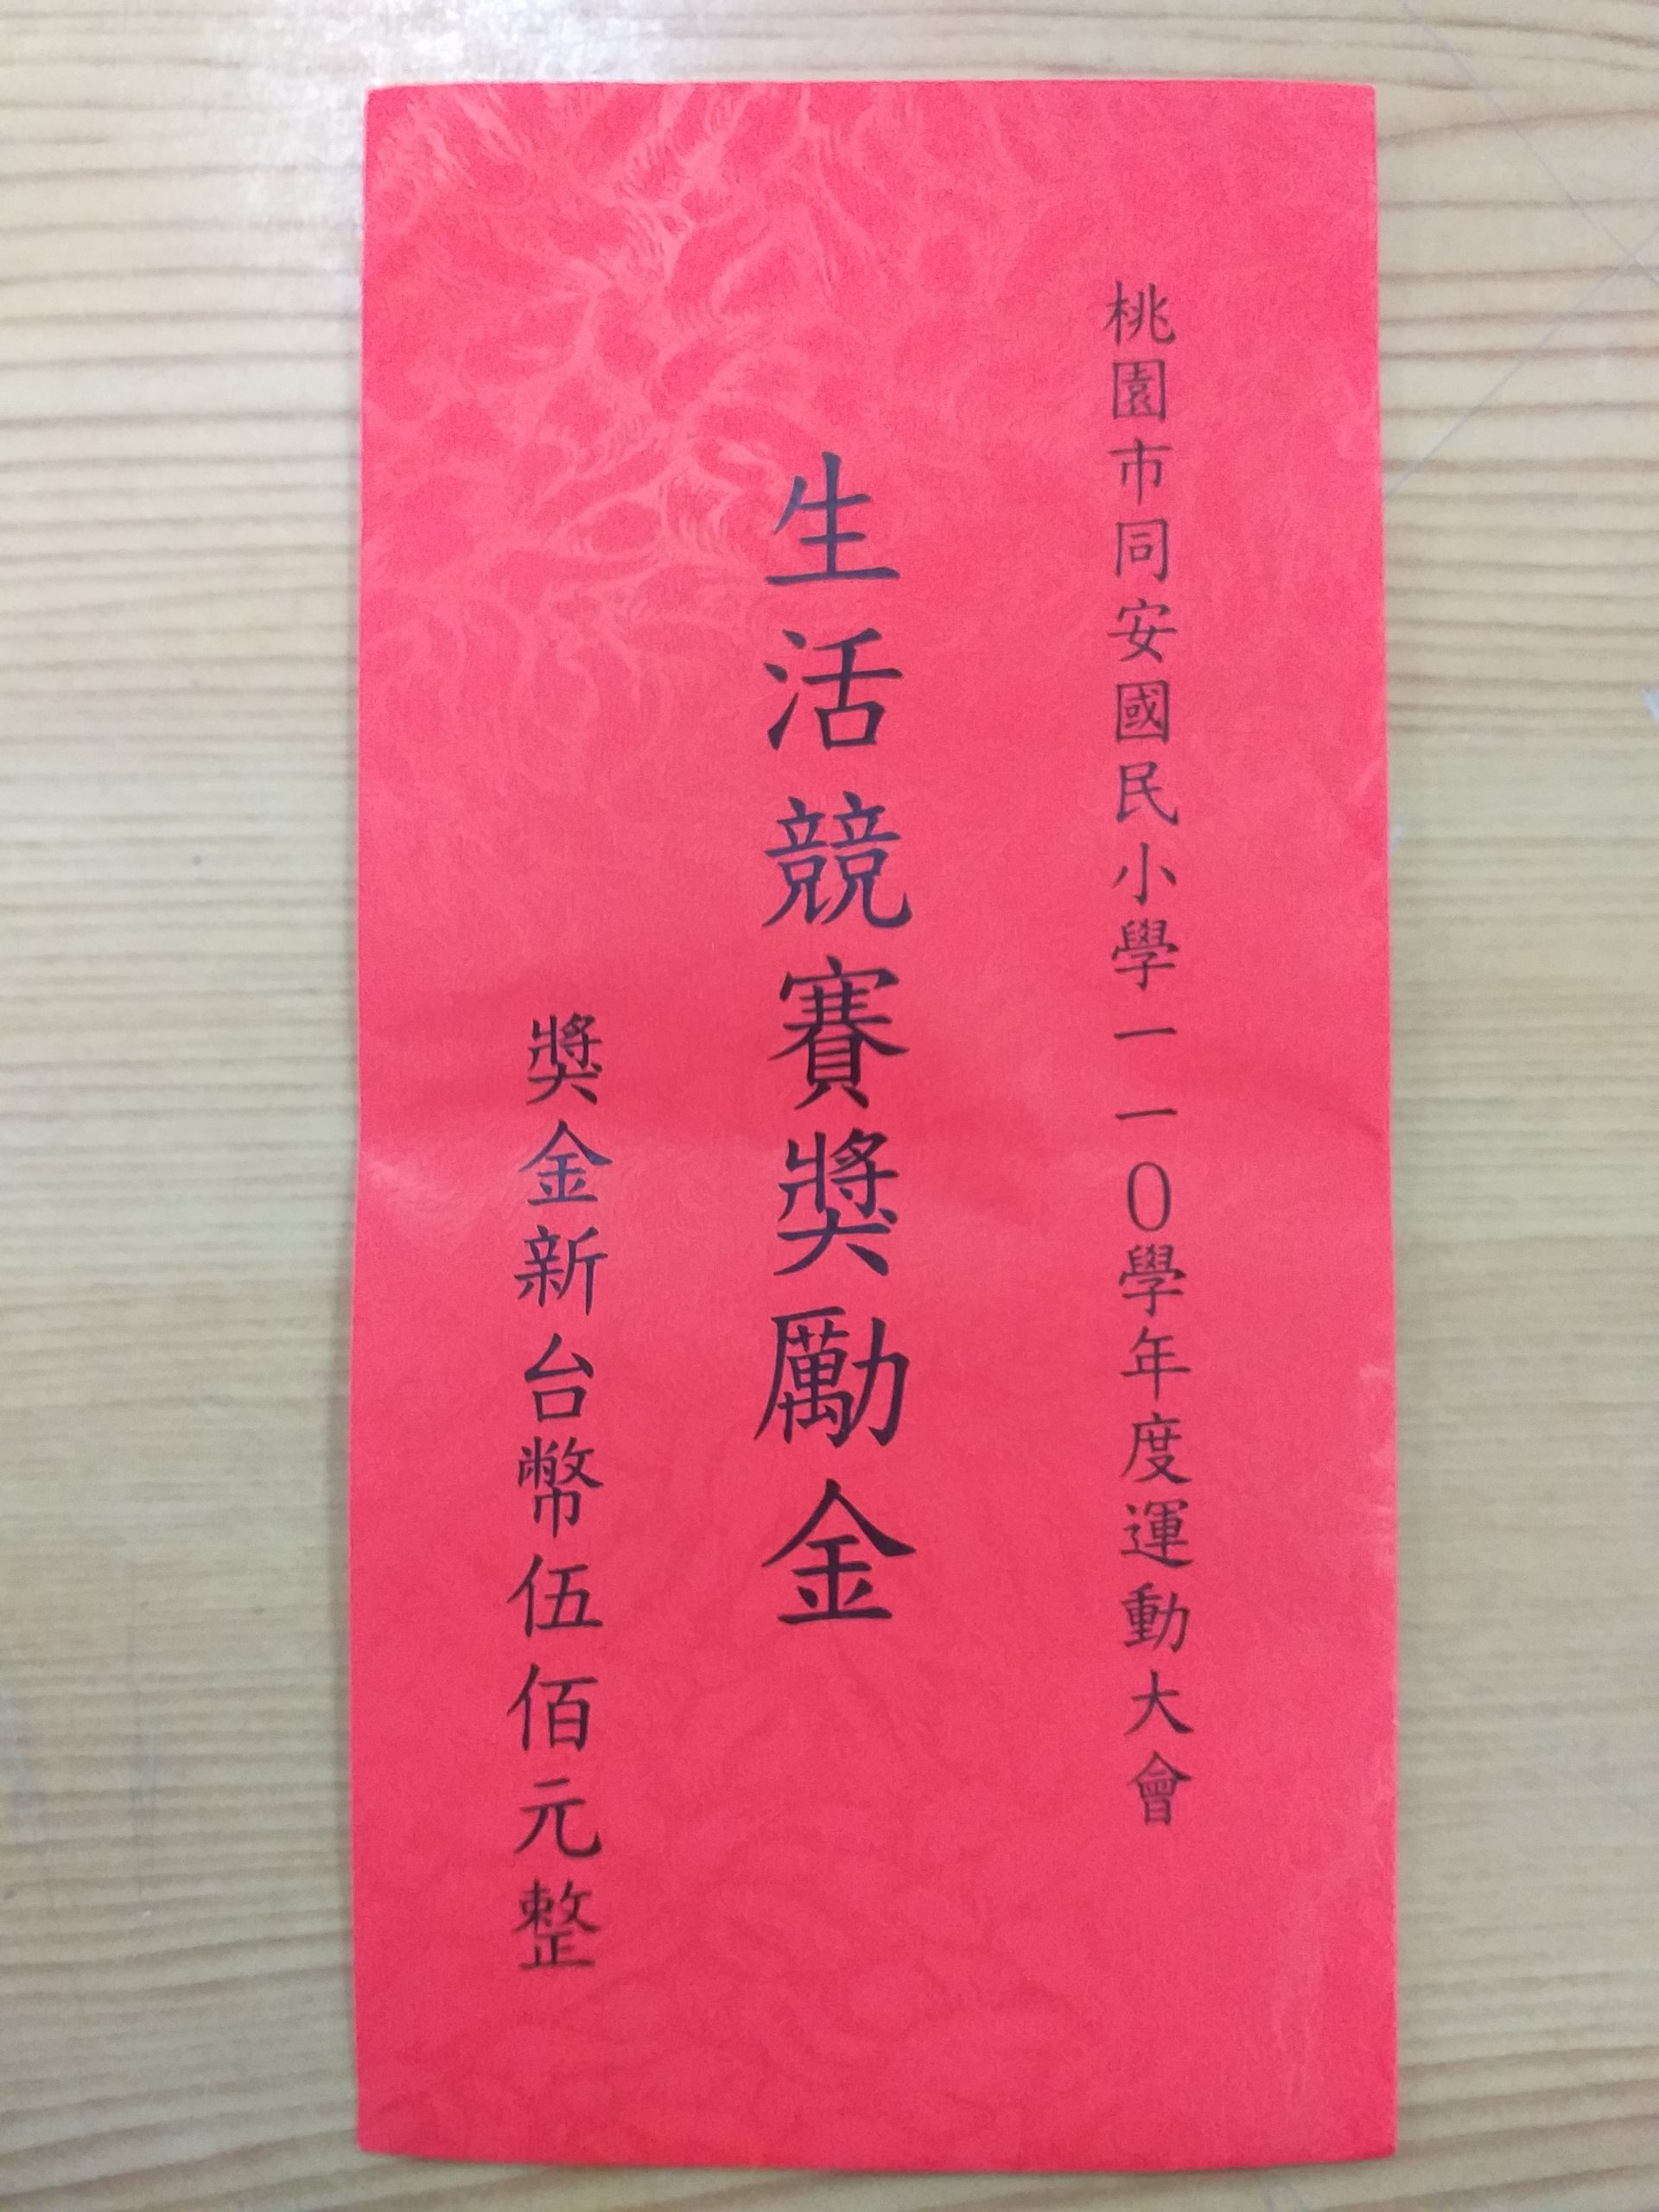 桃園市同安國民小學一一0學年度運動大會
生活競賽獎勵金
獎金新台幣伍佰元整